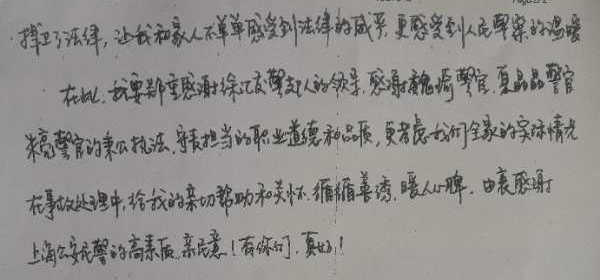 捍卫了法律，让我和家人不单单感受到法律的威严，更感受到人民警察的温暖
在此，我要郑重感谢徐汇交警支队的领导，感谢魏 警官，夏晶晶警官
朱亮警官的秉公执法、守责担当的职业道德和品质，更考虑我们全家的实际情况
在事故处理中，给我的亲切帮助和关怀，循循善诱，暖人心脾，由衷感谢
上海公安民警的高素质，亲民意！有你们，真好！